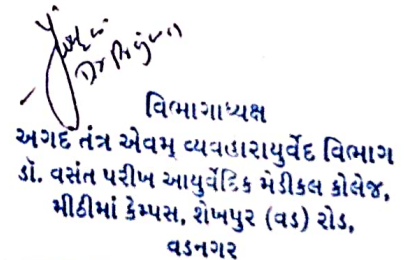 Dr
વિભાગાધ્યક્ષ
અગદ તંત્ર એવમ્ વ્યવહારાયુર્વેદ વિભાગ
ડૉ. વસંત પરીખ આયુર્વેદિક મેડીકલ કોલેજ,
મીઠીમાં કેમ્પસ, શેખપુર (વડ) રોડ,
વડનગર